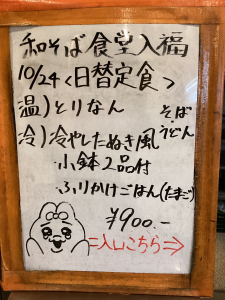 和そば食堂入福
10/24<日替定食>
温)とりなん そば
冷)冷やしたぬき風 うどん
小鉢2品付
ふりかけごはん(たまご)
¥900.-
入口こちら⇒